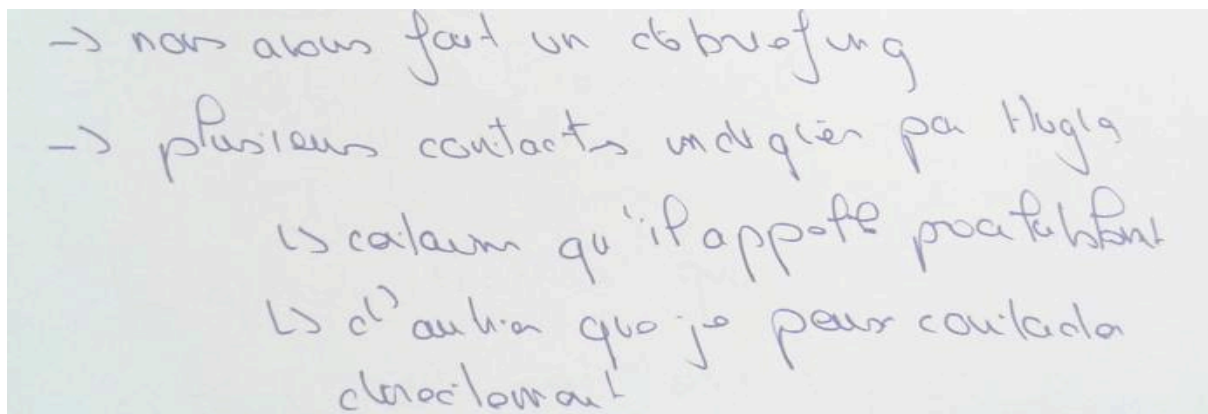 -> nous avons fait un debriefing
-> plusieurs contacts indiqués par
↳ certains qu'il appelle préalablement
↳ d'autres que je peux contacter
directement